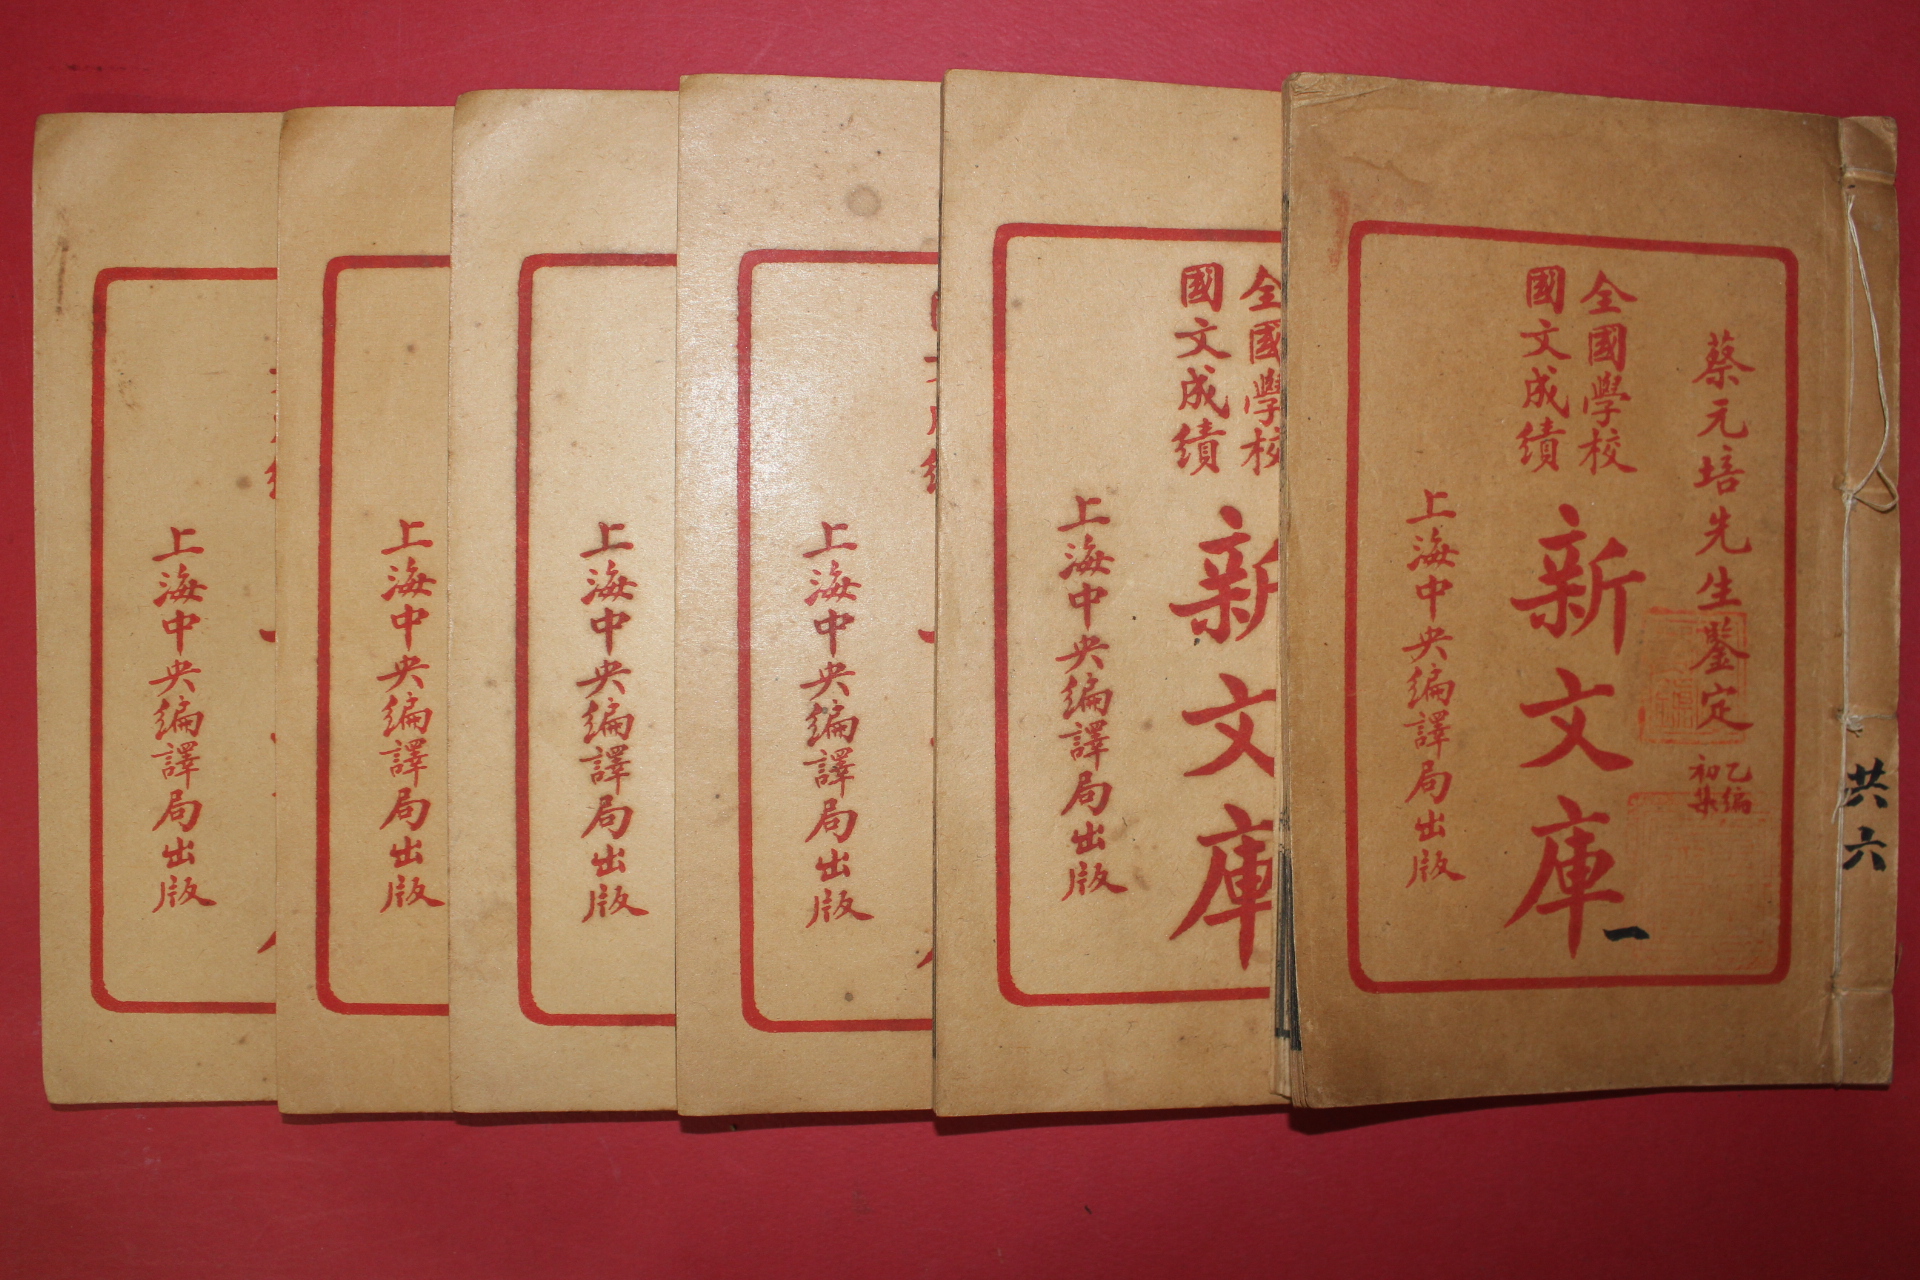 共六
蔡元培先生鑒定
乙編
初集
全國學校
國文成績
新文庫
一
上海中央編譯局出版
全國學校
國文成績
新文庫
上海中央編譯局出版
上海中央編譯局出版
上海中央編譯局出版
上海中央編譯局出版
上海中央編譯局出版